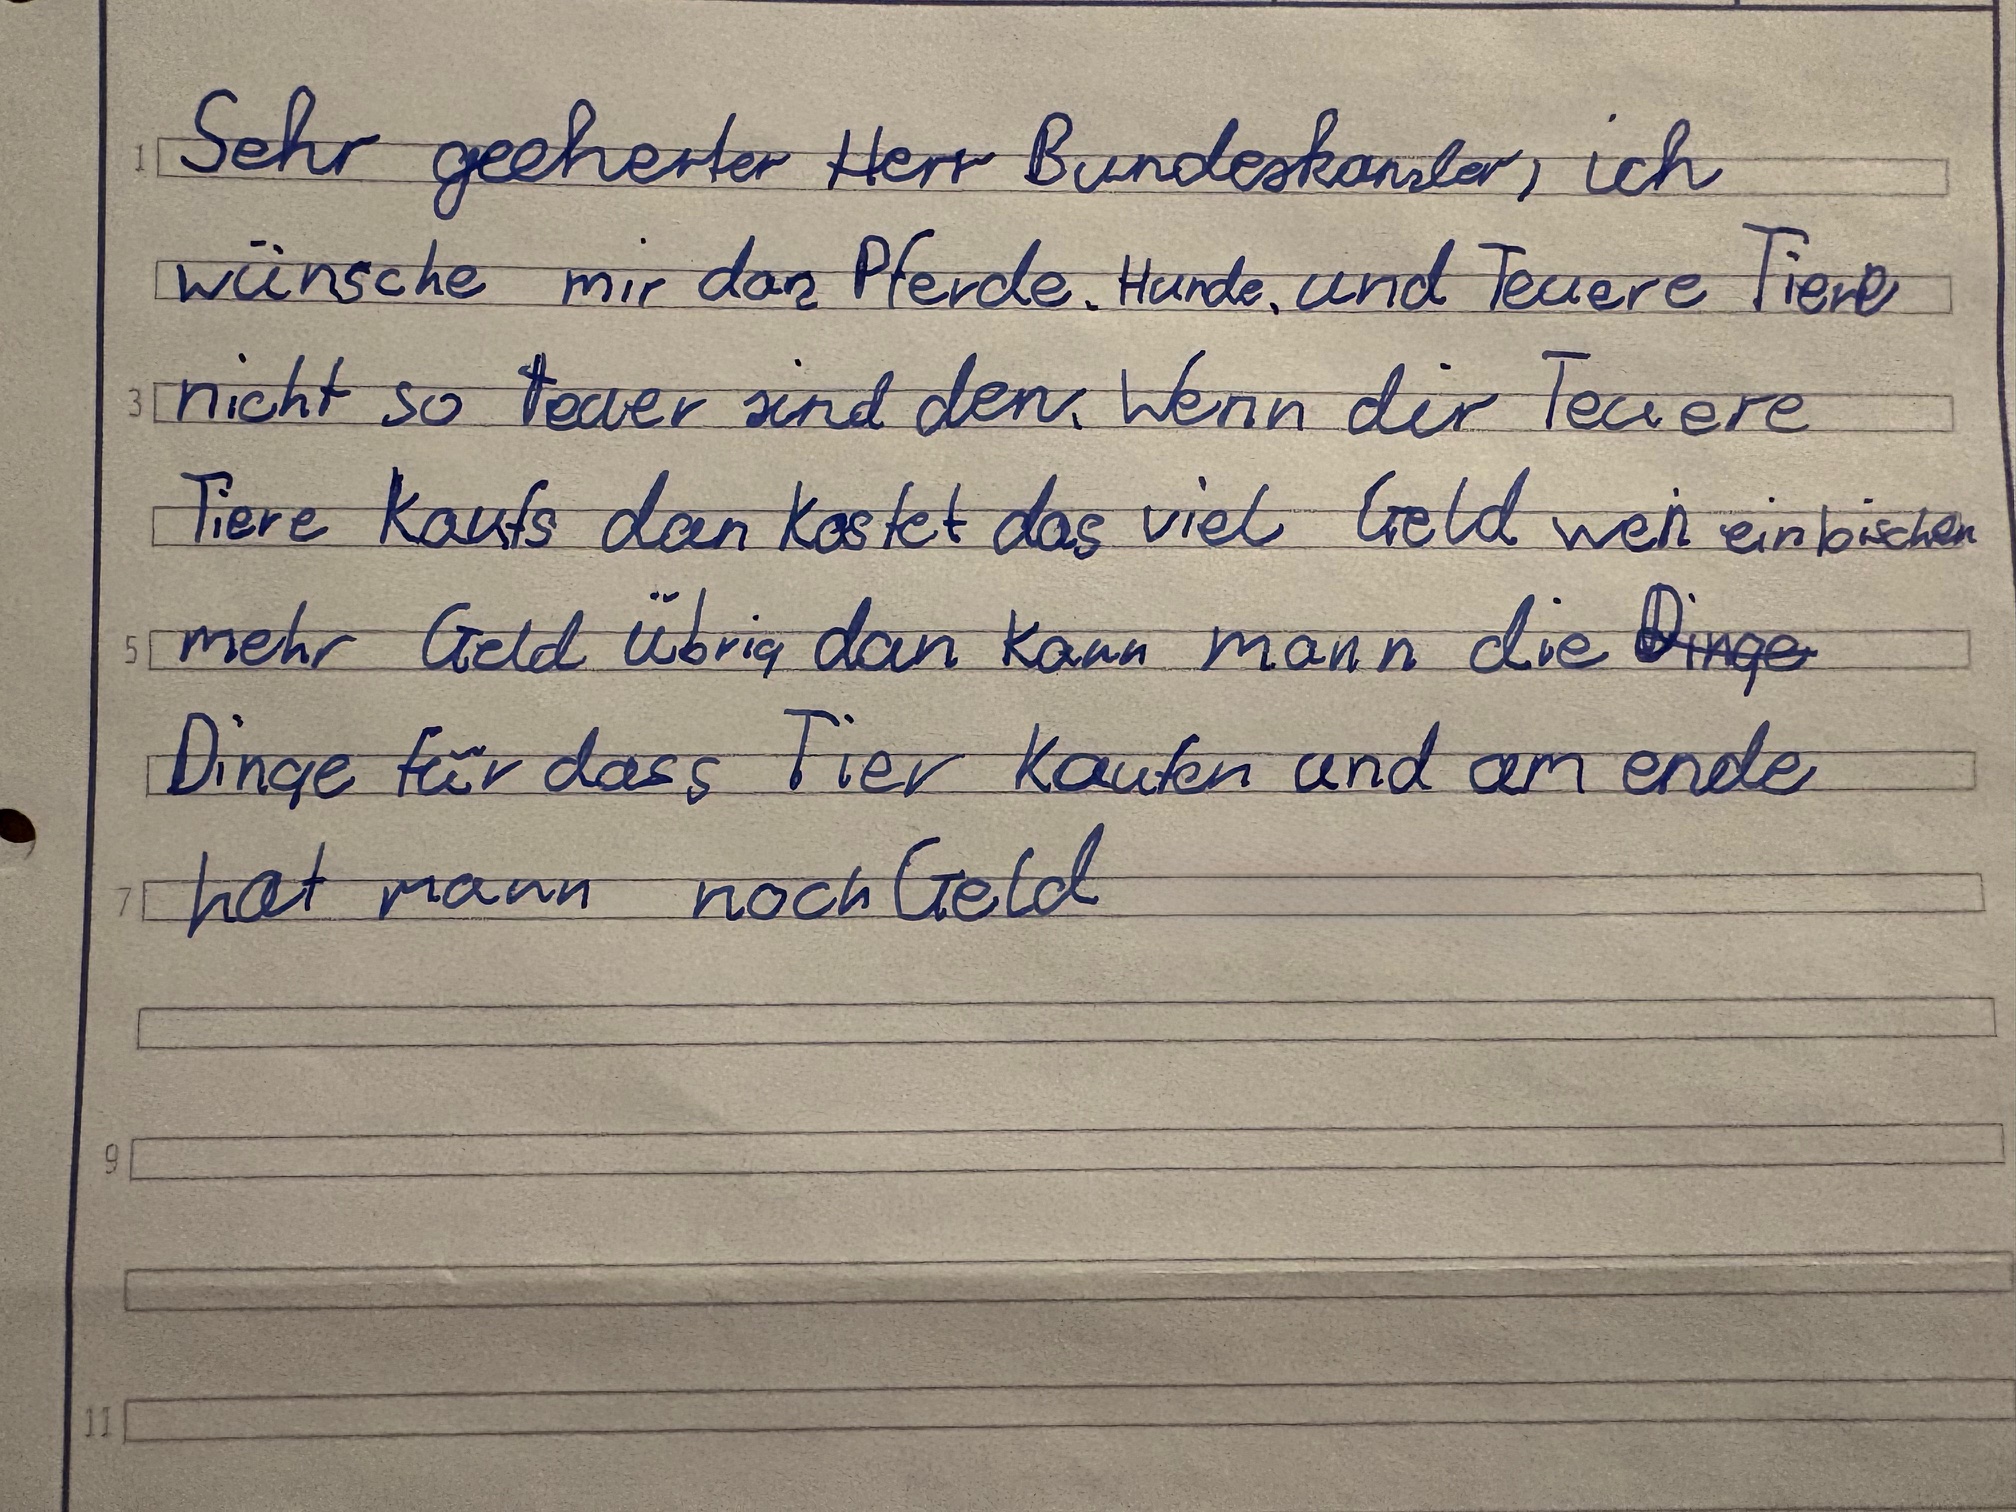 Sehr geeherter Herr Bundeskanzler, ich
wünsche mir das Pferde. Hunde. und Teuere Tiere
nicht so teuer sind den. Wenn dir Teuere
Tiere Kaufs dan Kostet das viel Geld wen ein bischen
mehr Geld Übrig dan Kann mann die Dinge
Dinge für dass Tier Kaufen und am ende
hat mann noch Geld
1
3
5
7
9
11